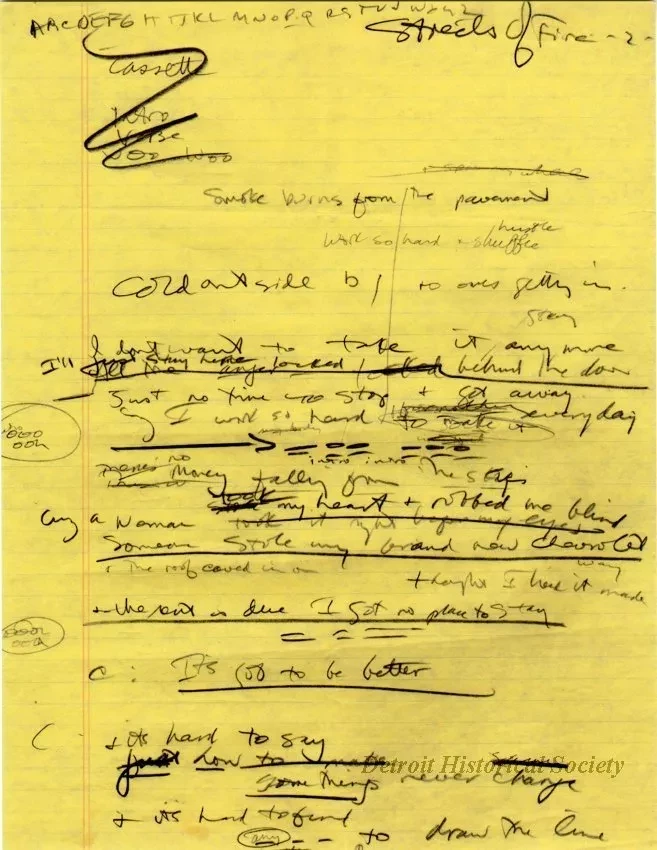 ABCDEFG H IJKL MNOP.Q RSTUVWXYZ
Streets of Fire - 2 -
Cassett
Intro
Verse
Woo Woo
Smoke burns from the pavement
hustle
Work so hard + shuffle
Cold outside b/ no ones getting in.
stay
I don't want to take it anymore
just stay here
I'll locked behind the door
Just no time to stop + get away
I work so hard to make it everyday
ooo
ooh
intro intro
no
Money falling from the skys
took my heart + robbed me blind
a woman took it right before my eyes
Someone stole my brand new Chevrolet
+ the roof caved in on way
thought I had it made
+ the rent is due I got no place to stay
oooh
ooh
C: It's got to be better
C - + its hard to say
just how to make
some things never change
+ its hard to find
any to draw the line
Detroit Historical Society